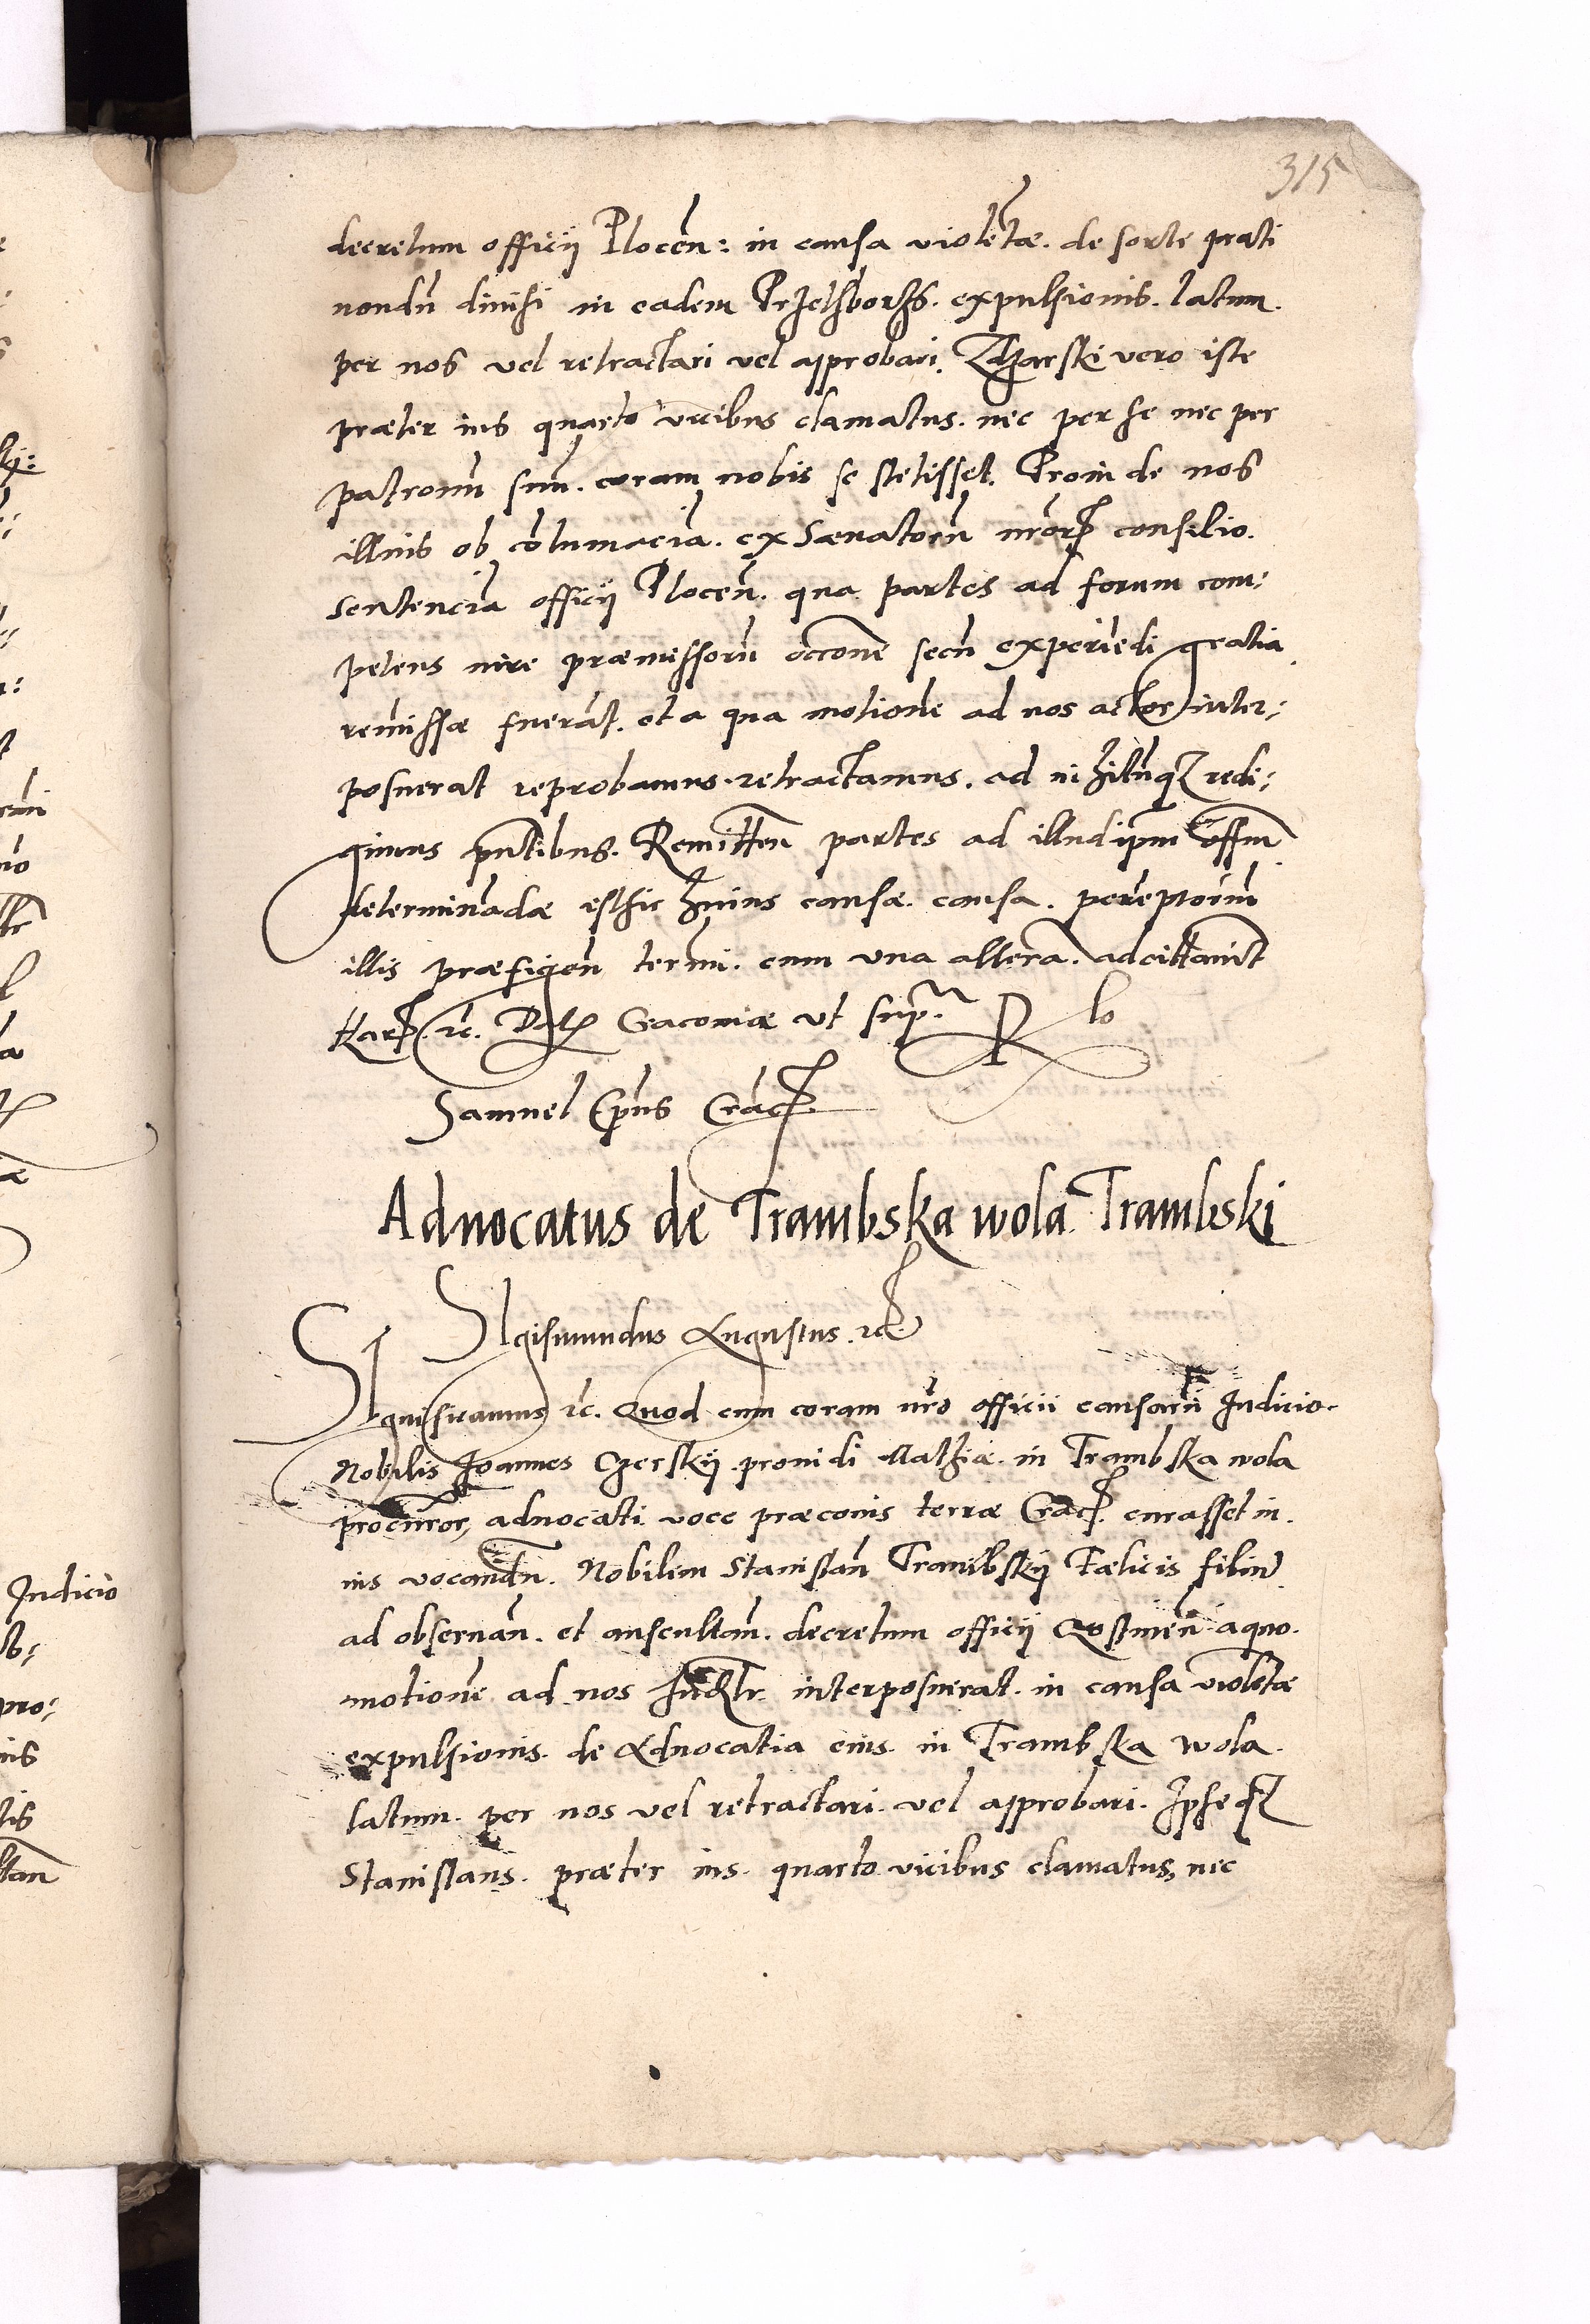 315
decretum officij Plocen: in causa violẽtæ. de sorte prati
nondũ diuisi in eadem expulsionis. latum.
per nos vel retractari vel approbari. Zgarski vero iste
præter ius quarto vicibus clamatus. nec per se nec per
patronũ suũ. coram nobis se stetisset. Proinde nos
illius ob cõtumaciã. ex Sænatorũ nrõrꝝ consilio.
sentenciã officij Plocen̄. qua partes ad forum com:
petens iure præmissorũ occõne secũ experiẽdi gratia
remissæ fuerãt. et a qua motionẽ ad nos actor inter:
posuerat reprobamus. retractamus. ad nihilũqꝫ redi:
gimus pñtibus. Remitteñ partes ad illud ipm̃ offm̃
determinãdæ esthic huius causæ. causa. perẽptoriũ
illis præfigeñ termi. cum una altera. adcittauit
Karꝝ. ꝛc. Datꝝ Cracouiæ ut sup. R lo
Samuel Ep̃us Cracꝝ
Aduocatus de Trambska wola Trambski
SIgismundus Augustus. ꝛc
SIgnificamus ꝛc. Quod cum coram nrõ officii causarũ Iudicio.
Nobilis Joannes Czerskij prouidi Mathiæ. in Trambska wola
procũror, aduocati voce præconis terræ Cracꝝ. curasset in.
ius vocandũ. Nobilem Stanislaũ Trambskij Fælicis filiũ
ad obseruañ. et auscultañ. decretum officij Gostineñ a quo.
motionẽ ad nos interposuerat. in causa violẽtæ
expulsionis. de Aduocatia eius. in Trambska wola.
latum. per nos vel retractari. vel approbari. Ipseqꝫ
Stanislaus. præter ius. quarto vicibus clamatus, nec